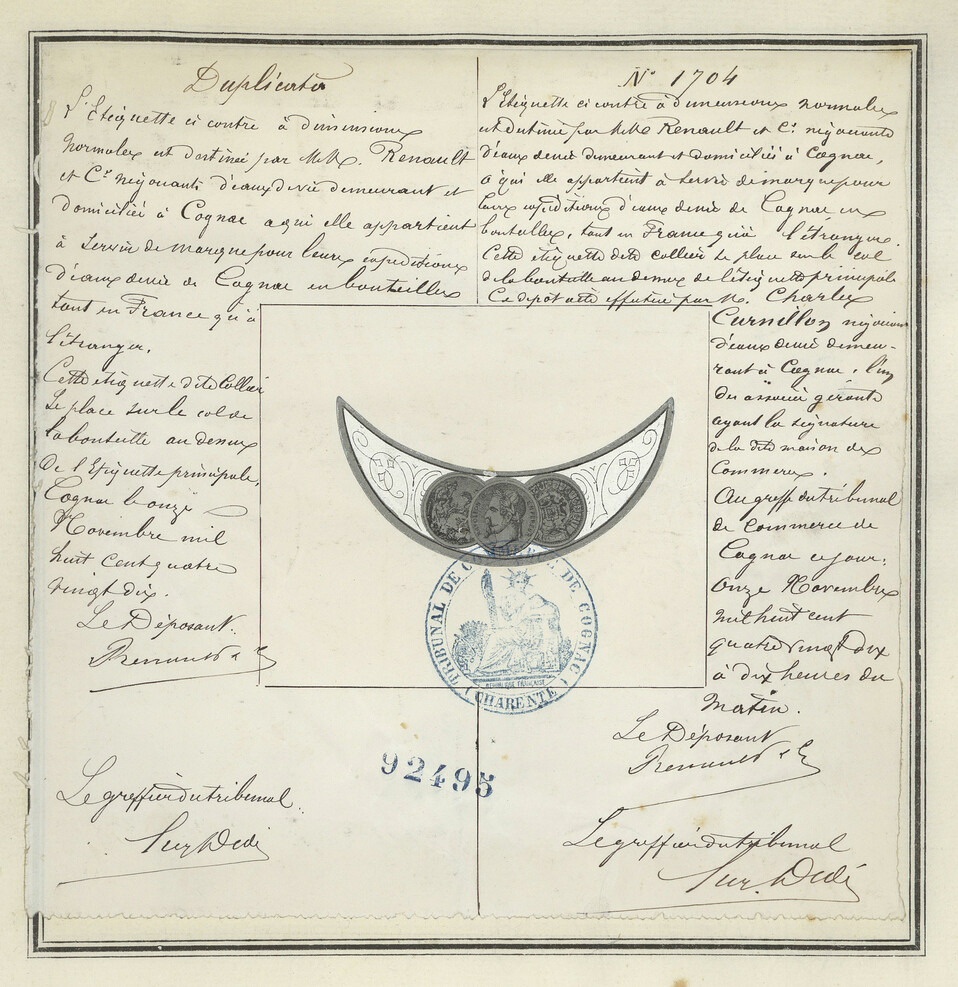 Duplicata
L'Etiquette ci contre à dimensions
normales est destinée par M.M. Renault
et Cie négociants d'eaux de vie demeurant et
domiciliés à Cognac à qui elle appartient
à servir de marque pour leurs expéditions
d'eaux de vie de Cognac en bouteilles
tant en France qu'à
l'étranger.
Cette étiquette dite Collier
se place sur le col de
la bouteille au dessus
de l'Etiquette principale,
Cognac le onze
Novembre mil
huit cent quatre
vingt dix.
Le Déposant.
Renault & Co
Le greffier du tribunal.
N° 1704
L'Etiquette ci contre à dimensions normales
est destinée par M.M. Renault et Cie négociants
d'eaux de vie demeurant et domiciliés à Cognac,
à qui elle appartient à servir de marque pour
leurs expéditions d'eaux de vie de Cognac en
bouteilles, tant en France qu'à l'étranger.
Cette étiquette dite collier se place sur le col
de la bouteille au dessus de l'étiquette principale
Ce dépôt a été effectué par M. Charles
Curnillon négociant
d'eaux de vie demeu-
rant à Cognac, l'un
des associés gérants
ayant la signature
de la dite maison de
Commerce.
Au greffe du tribunal
de Commerce de
Cognac ce jour:
onze Novembre
mil huit cent
quatre vingt dix
à dix heures du
Matin.
Le Déposant
Renault & Co
Le greffier du tribunal
TRIBUNAL DE COMMERCE DE COGNAC
RÉPUBLIQUE FRANÇAISE
(CHARENTE)
92495